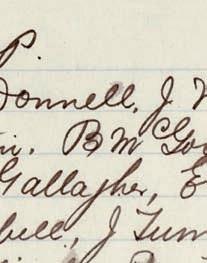 P.
Donnell, J
B McGo
Gallagher, E
bell, J Turn